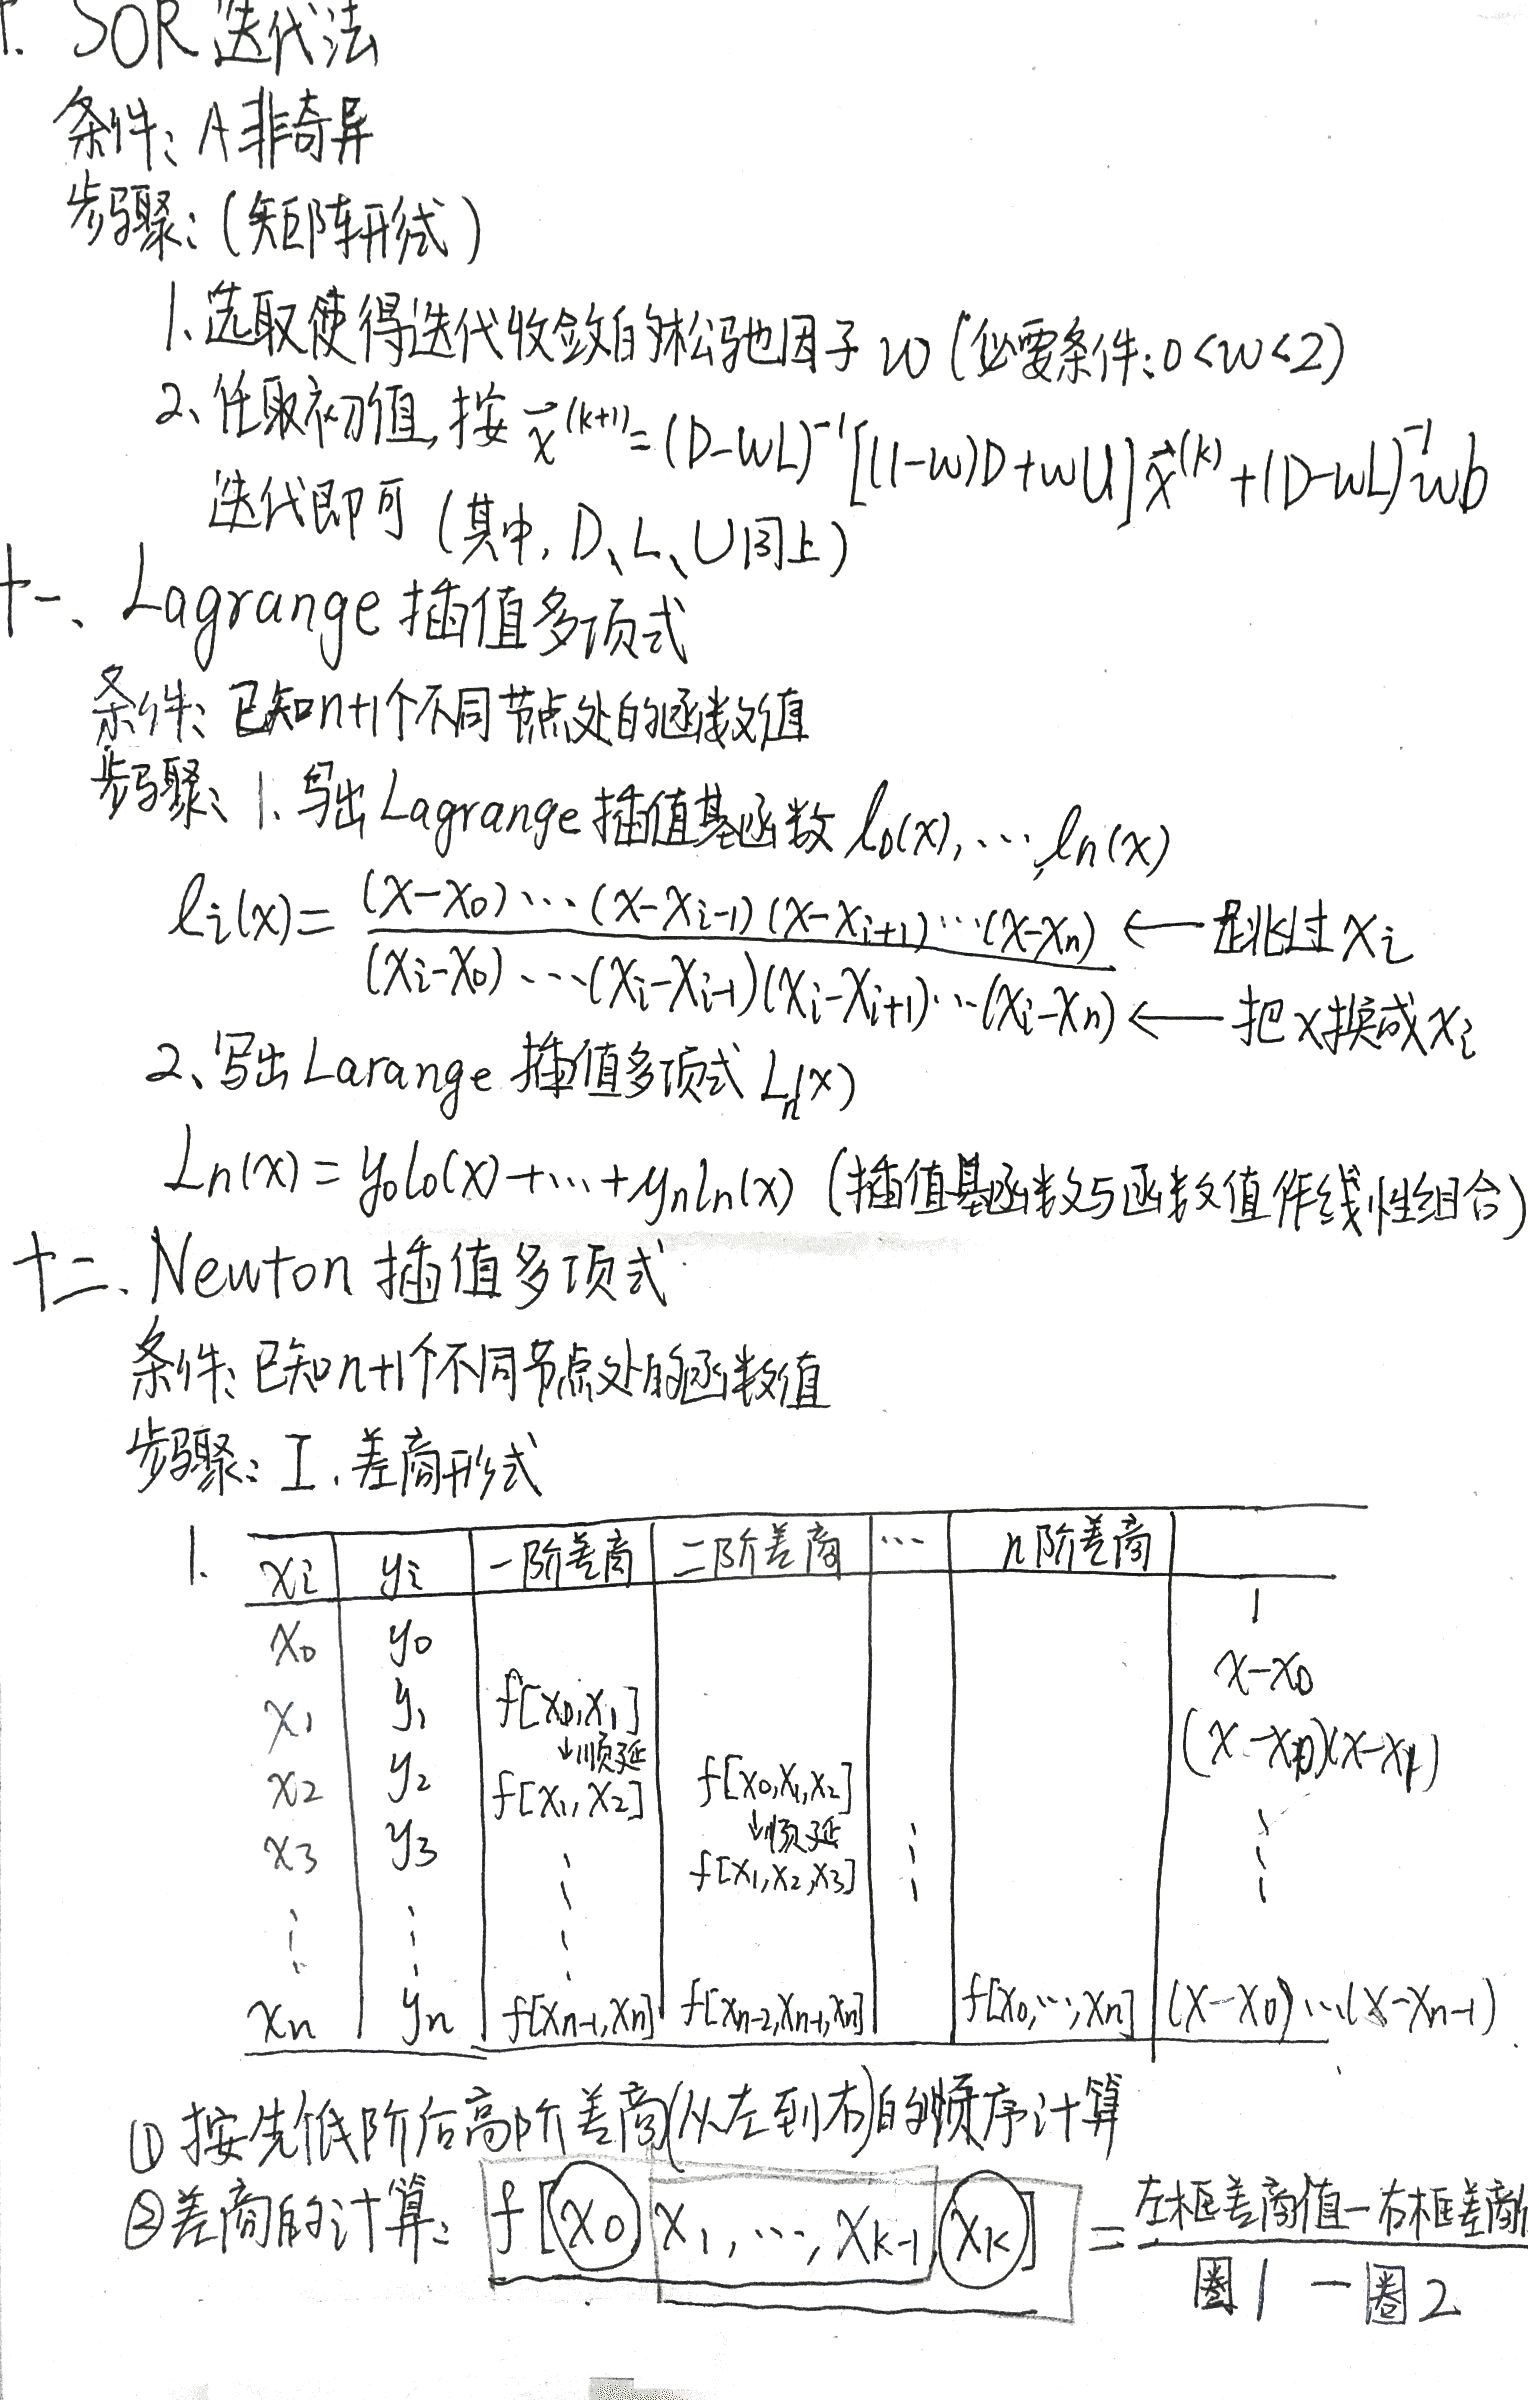 十. SOR 迭代法
条件: A非奇异
步骤: (矩阵形式)
1. 选取使得迭代收敛的松弛因子 w (必要条件: 0<w<2)
2、任取初值, 按 x⃗^(k+1) = (D-wL)^-1 [(1-w)D+wU] x⃗^(k) + (D-wL)^-1 wb
迭代即可 (其中, D、L、U同上)
十一、Lagrange 插值多项式
条件: 已知n+1个不同节点处的函数值
步骤: 1. 写出Lagrange 插值基函数 l0(x), ···, ln(x)
li(x) = (x-x0)···(x-xi-1)(x-xi+1)···(x-xn) ← 跳过 xi
(xi-x0)···(xi-xi-1)(xi-xi+1)···(xi-xn) ← 把x换成xi
2、写出Larange 插值多项式 Ln(x)
Ln(x) = y0l0(x)+···+ynln(x) (插值基函数与函数值作线性组合)
十二. Newton 插值多项式
条件: 已知n+1个不同节点处的函数值
步骤: I. 差商形式
1. xi yi 一阶差商 二阶差商 ··· n阶差商
1
x0 y0
x-x0
x1 y1 f[x0,x1]
↓顺延
(x-x0)(x-x1)
x2 y2 f[x1,x2] f[x0,x1,x2]
↓顺延
x3 y3 ⋮ f[x1,x2,x3] ⋮ ⋮
⋮ ⋮ ⋮
xn yn f[xn-1,xn] f[xn-2,xn-1,xn] f[x0,···,xn] (x-x0)···(x-xn-1)
① 按先低阶后高阶差商(从左到右)的顺序计算
②差商的计算: f[x0, x1, ···, xk-1, xk] = 左框差商值-右框差商
圈1 - 圈2